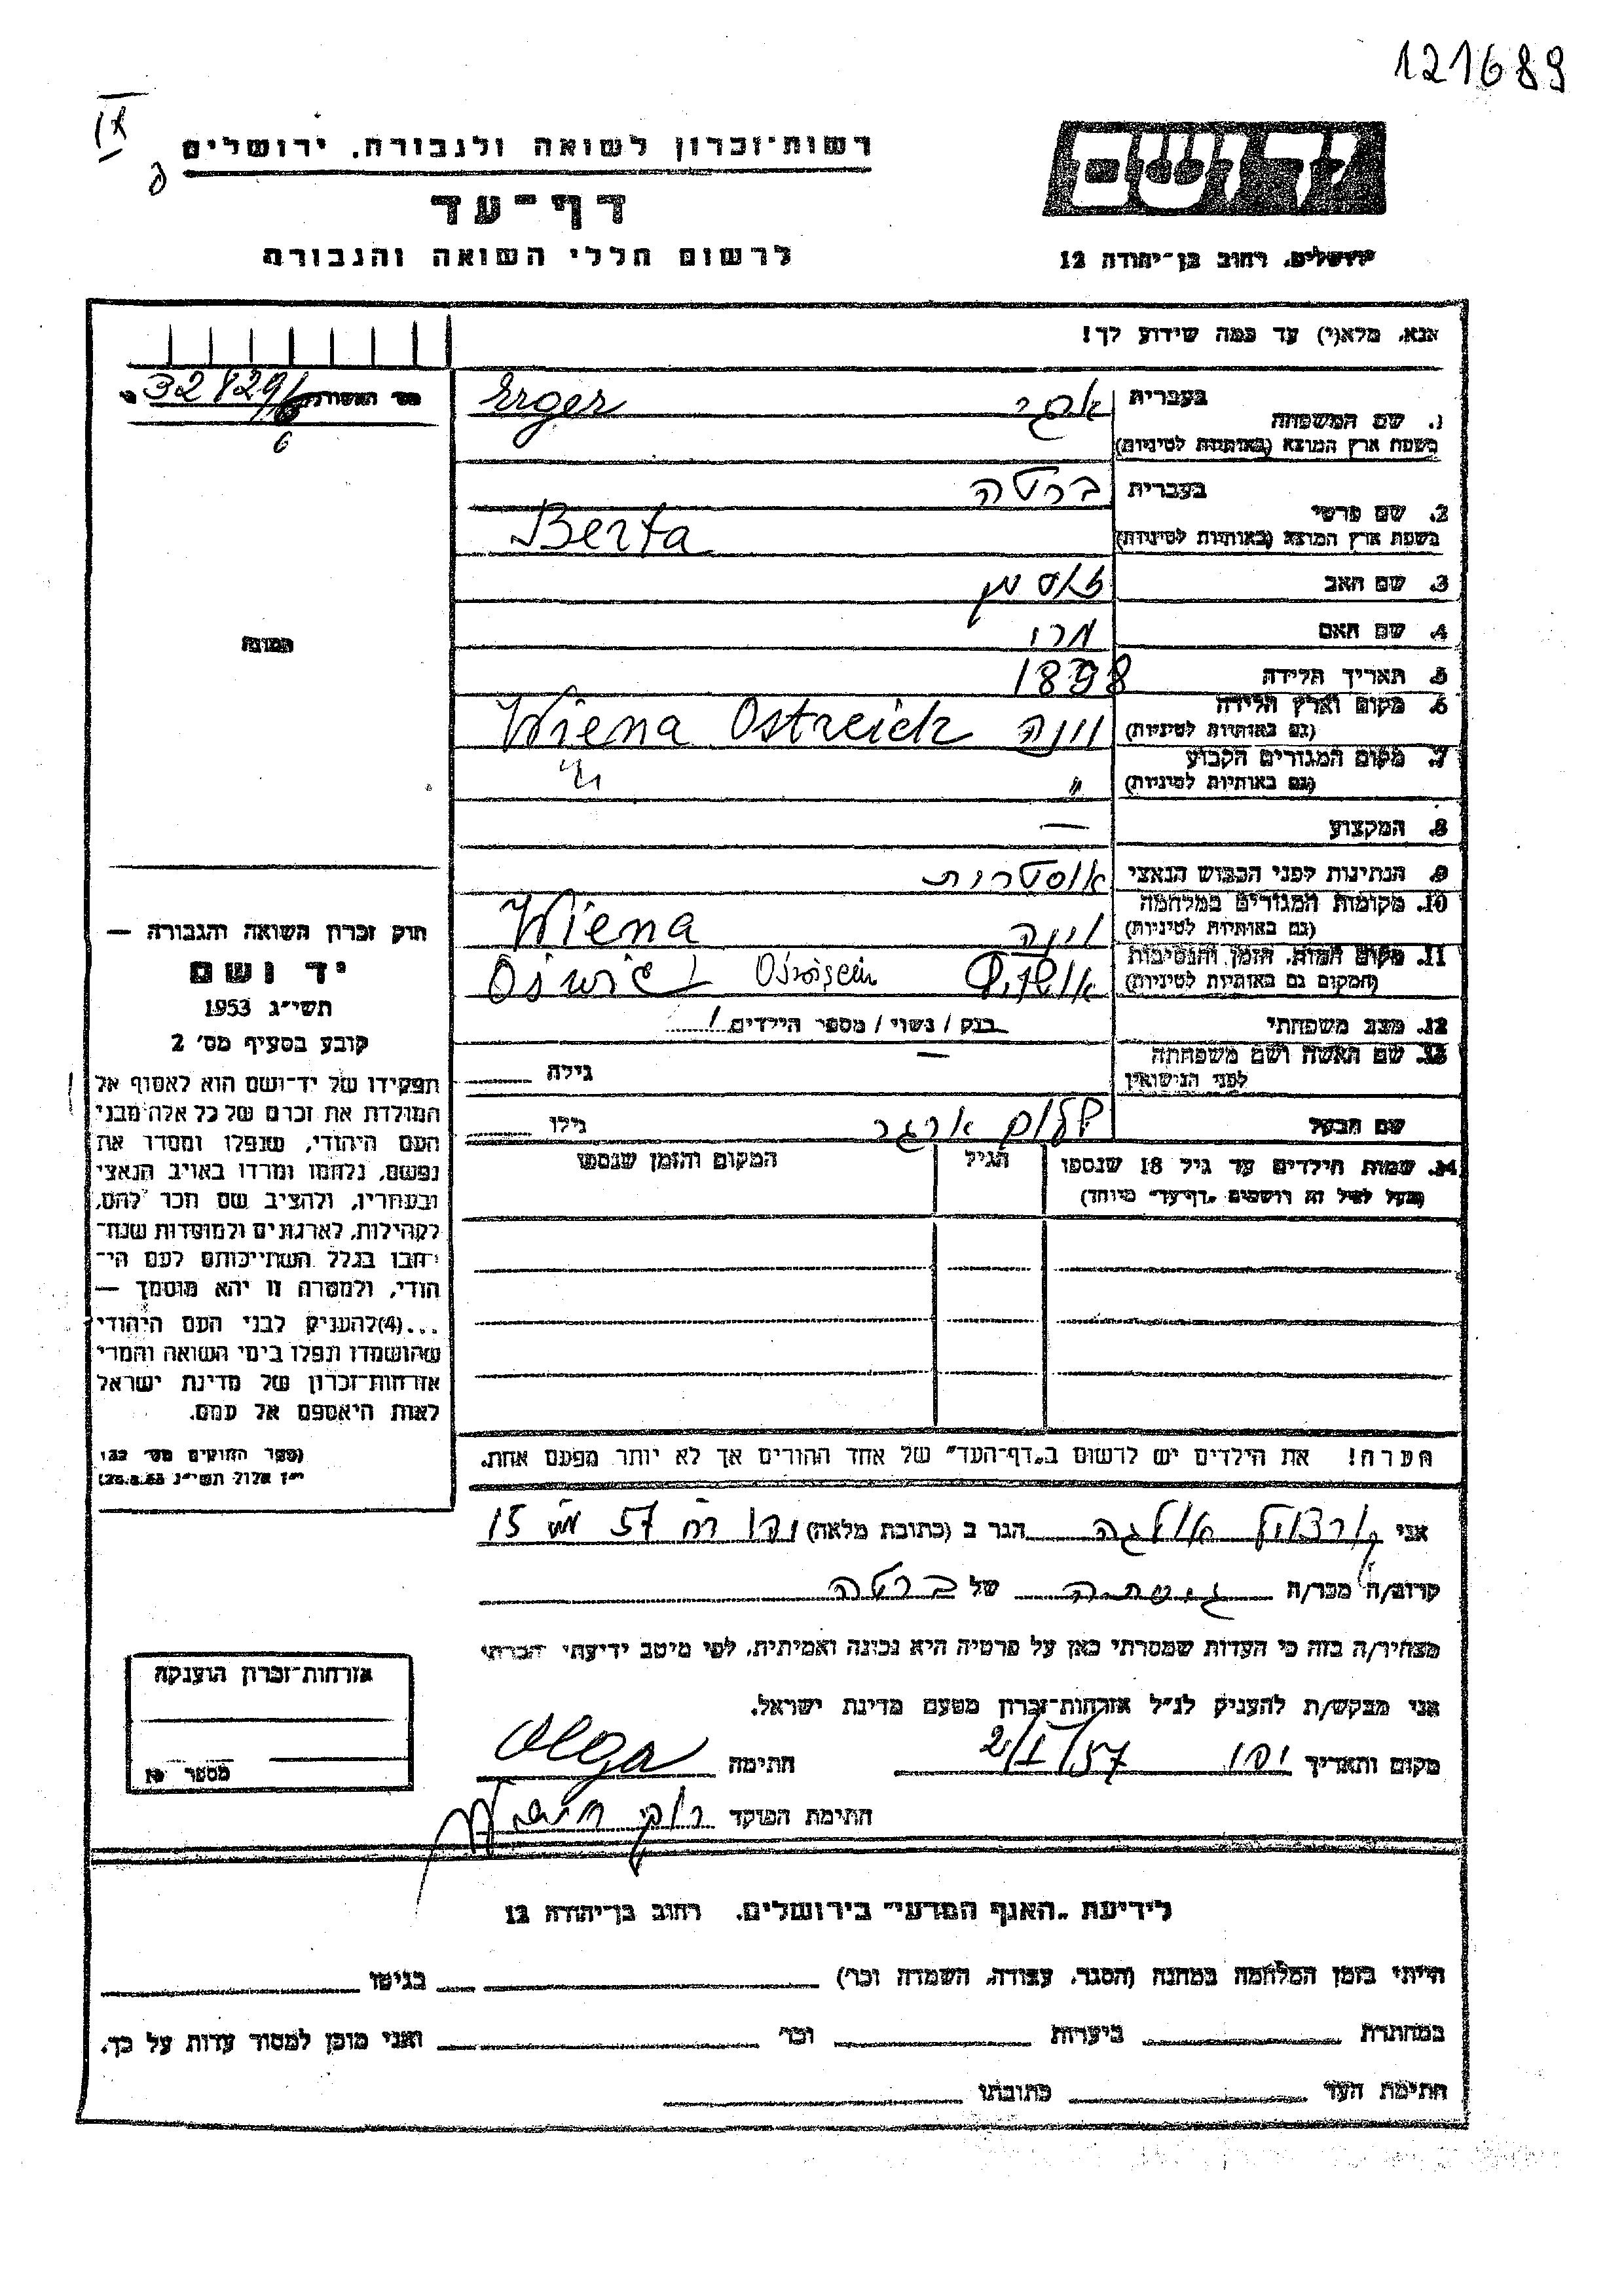 121689
רשות־זכרון לשואה ולגבורה, ירושלים
דף־עד
לרשום חללי השואה והגבורה
יד ושם
ירושלים, רחוב בן־יהודה 12
אנא, מלא(י) עד כמה שידוע לך!
1. שם המשפחה
בעברית
Erger
בשפת ארץ המוצא (באותיות לטיניות)
2. שם פרטי
בעברית ברטה
בשפת ארץ המוצא (באותיות לטיניות) Berta
3. שם האב
4. שם האם
5. תאריך הלידה 1898
6. מקום וארץ הלידה
(גם באותיות לטיניות) וינה Wiena Ostreich
7. מקום המגורים הקבוע
(גם באותיות לטיניות) "
8. המקצוע —
9. הנתינות לפני הכבוש הנאצי אוסטרית
10. מקומות המגורים במלחמה
(גם באותיות לטיניות) וינה Wiena
11. מקום המות, הזמן והנסיבות
(המקום גם באותיות לטיניות)
12. מצב משפחתי רווק / נשוי / מספר הילדים 1
13. שם האשה ושם משפחתה
לפני הנישואין — גילה
שם הבעל שלום ארגר גילו
14. שמות הילדים עד גיל 18 שנספו
(מעל לגיל זה רושמים "דף־עד" מיוחד)
הגיל
המקום והזמן שנספו
הערה! את הילדים יש לרשום ב"דף־העד" של אחד ההורים אך לא יותר מפעם אחת.
32829/6
6
מס' האשורת
תמונה
חוק זכרון השואה והגבורה —
יד ושם
תשי"ג 1953
קובע בסעיף מס' 2
תפקידו של יד־ושם הוא לאסוף אל
המולדת את זכרם של כל אלה מבני
העם היהודי, שנפלו ומסרו את
נפשם, נלחמו ומרדו באויב הנאצי
ובעוזריו, ולהציב שם וזכר להם,
לקהילות, לארגונים ולמוסדות שנח־
רבו בגלל השתייכותם לעם הי־
הודי, ולמטרה זו יהא מוסמך —
...(4)להעניק לבני העם היהודי
שהושמדו ונפלו בימי השואה והמרי
אזרחות־זכרון של מדינת ישראל
לאות היאספם אל עמם.
(ספר החוקים מס' 132
י"ז אלול תשי"ג 28.8.53)
אני אולגה הגר ב (כתובת מלאה) יפו רח 57 מס 15
קרוב/ה מכר/ה של ברטה
מצהיר/ה בזה כי העדות שמסרתי כאן על פרטיה היא נכונה ואמיתית, לפי מיטב ידיעתי והכרתי
אני מבקש/ת להעניק לנ"ל אזרחות־זכרון מטעם מדינת ישראל.
מקום ותאריך יפו 2/I/57 חתימה Olga
חתימת הפוקד
אזרחות־זכרון הוענקה
מספר
לידיעת "האגף המדעי" בירושלים, רחוב בן־יהודה 12
הייתי בזמן המלחמה במחנה (הסגר, עבודה, השמדה וכו') בגיטו
במחתרת ביערות וכו' ואני מוכן למסור עדות על כך.
חתימת העד כתובתו